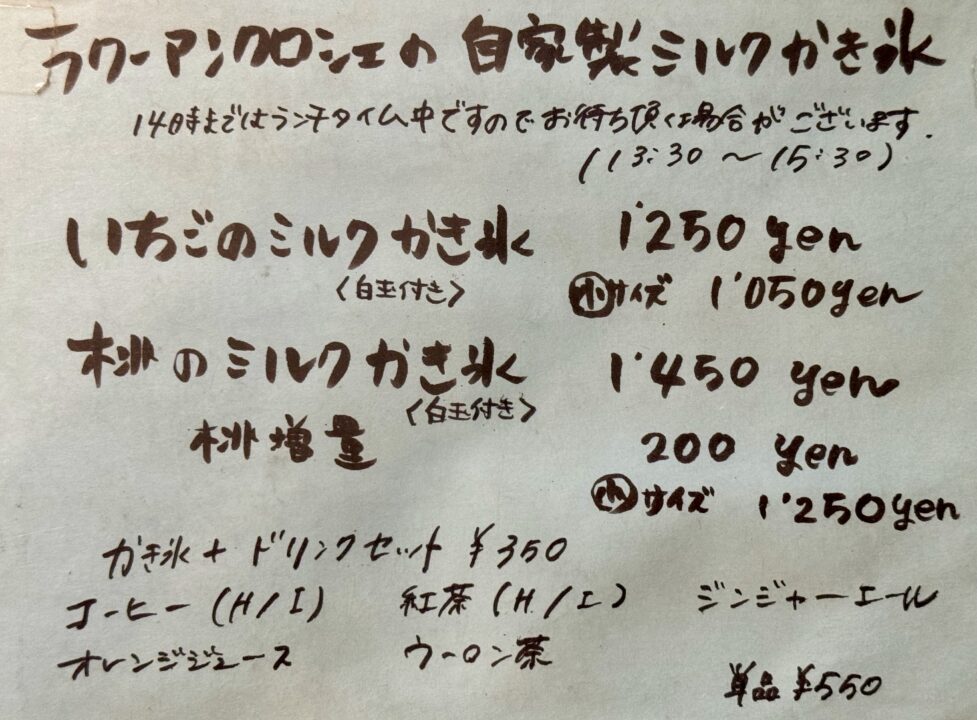 ラワーアンクロシェの 自家製ミルクかき氷
14時まではランチタイム中ですのでお待ち頂く場合がございます.
(13:30 〜 15:30)
いちごのミルクかき氷 1'250 yen
〈白玉付き〉 小サイズ 1'050yen
桃のミルクかき氷 1'450 yen
〈白玉付き〉
桃増量 200 yen
小サイズ 1'250yen
かき氷 + ドリンクセット ¥350
コーヒー (H/I) 紅茶 (H/I) ジンジャーエール
オレンジジュース ウーロン茶
単品 ¥550